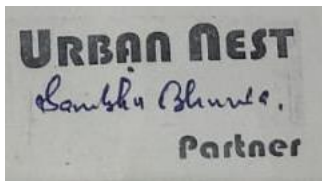 URBAN NEST
Sambhu Bhunia.
Partner